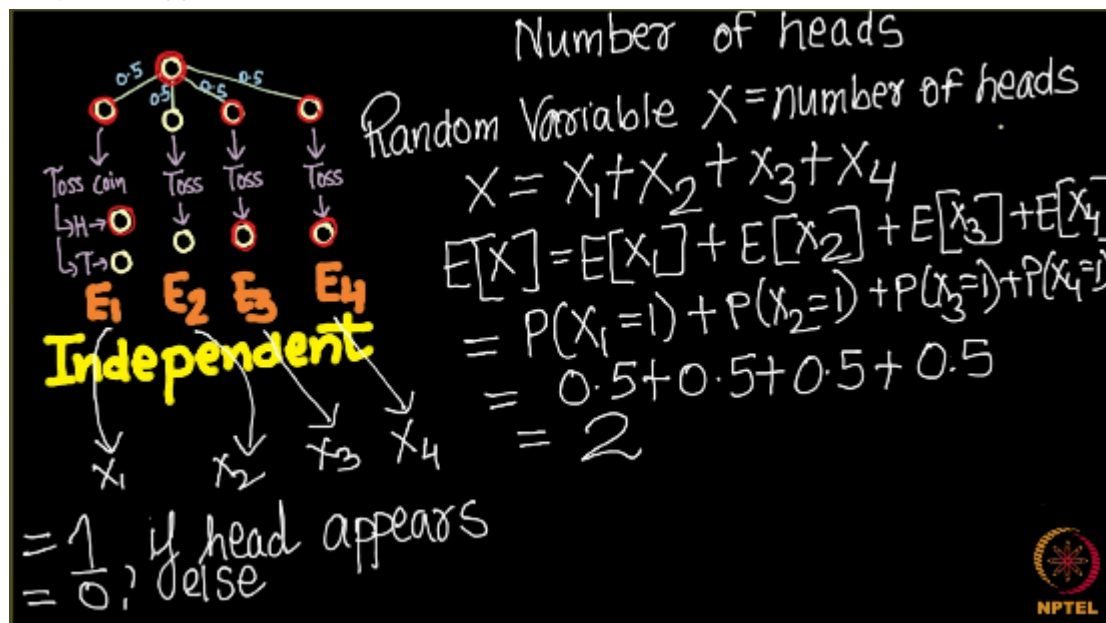 Number of heads
Random Variable X = number of heads
X = X₁ + X₂ + X₃ + X₄
E[X] = E[X₁] + E[X₂] + E[X₃] + E[X₄]
= P(X₁=1) + P(X₂=1) + P(X₃=1) + P(X₄=1)
= 0.5 + 0.5 + 0.5 + 0.5
= 2
0.5 0.5 0.5 0.5
Toss coin Toss Toss Toss
↳H→
↳T→
E₁ E₂ E₃ E₄
Independent
X₁ X₂ X₃ X₄
= 1 if head appears
= 0, else
NPTEL